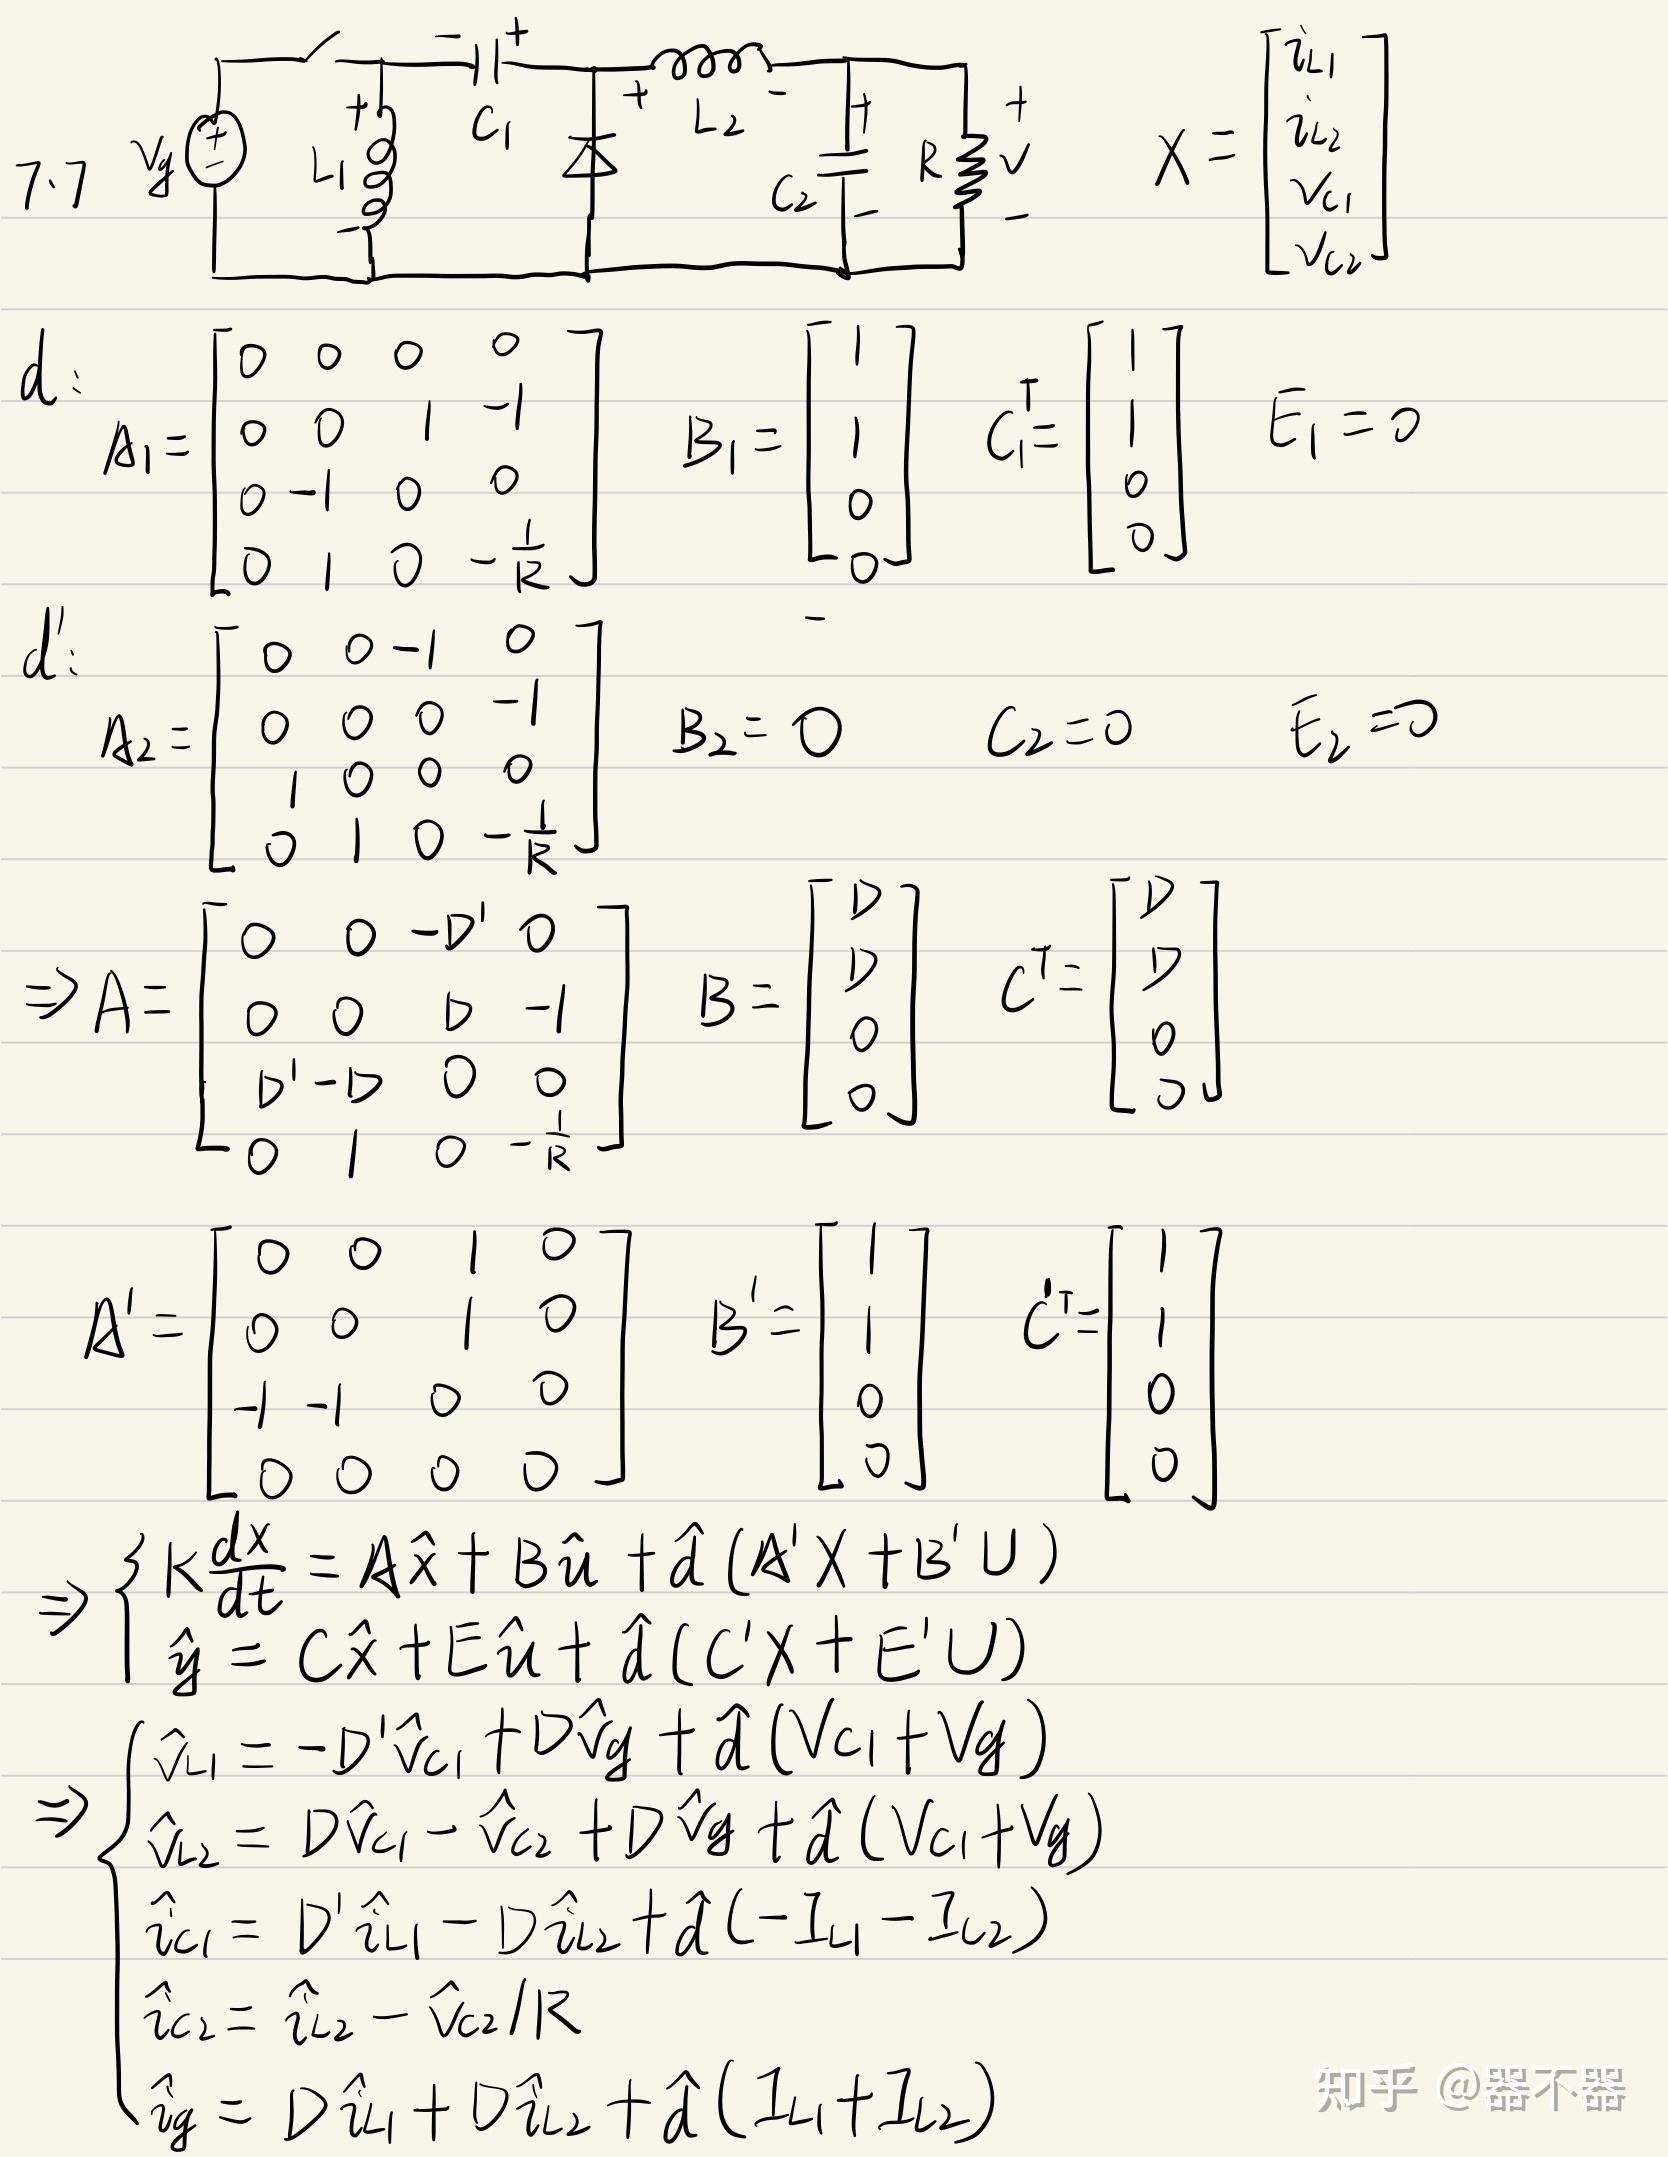 7.7 Vg + - L1 + - - + C1 + - L2 C2 + - R + V - X = [iL1 iL2 VC1 VC2]
d:
A1 = [0 0 0 0; 0 0 1 -1; 0 -1 0 0; 0 1 0 -1/R] B1 = [1 1 0 0] C1^T = [1 1 0 0] E1 = 0
d':
A2 = [0 0 -1 0; 0 0 0 -1; 1 0 0 0; 0 1 0 -1/R] B2 = 0 C2 = 0 E2 = 0
⇒ A = [0 0 -D' 0; 0 0 D -1; D' -D 0 0; 0 1 0 -1/R] B = [D D 0 0] C^T = [D D 0 0]
A' = [0 0 1 0; 0 0 1 0; -1 -1 0 0; 0 0 0 0] B' = [1 1 0 0] C'^T = [1 1 0 0]
⇒ { K dx/dt = Ax̂ + Bû + d̂(A'X + B'U)
ŷ = Cx̂ + Eû + d̂(C'X + E'U)
⇒ { v̂L1 = -D'v̂C1 + Dv̂g + d̂(VC1 + Vg)
v̂L2 = Dv̂C1 - v̂C2 + Dv̂g + d̂(VC1 + Vg)
îC1 = D'îL1 - DîL2 + d̂(-IL1 - IL2)
îC2 = îL2 - v̂C2/R
îg = DîL1 + DîL2 + d̂(IL1 + IL2)
知乎 @器不器